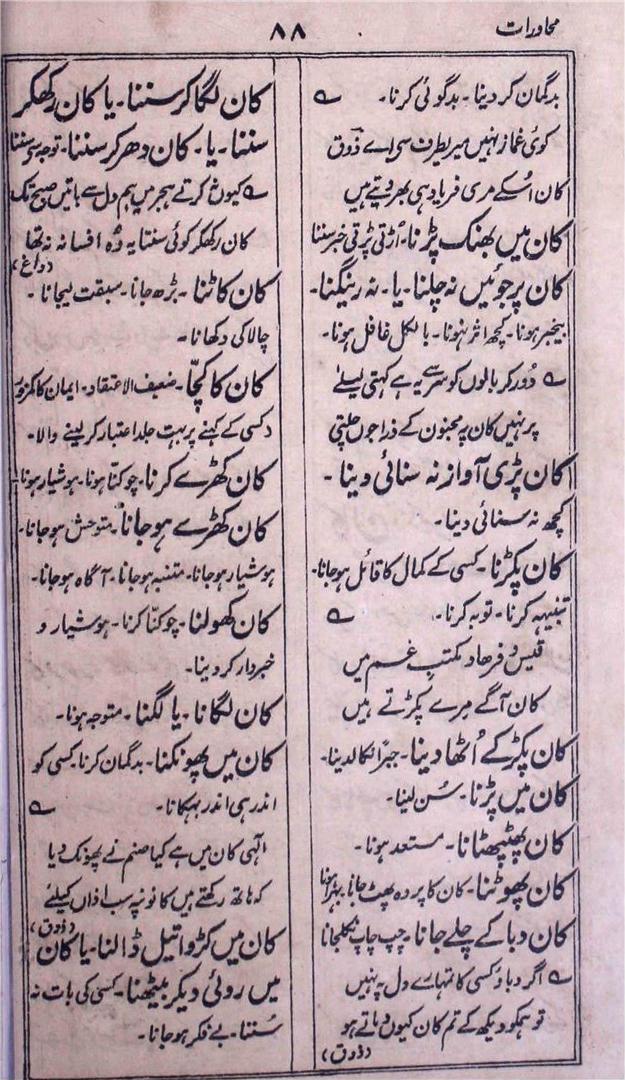 محاورات
۸۸
بدگمان کر دینا۔ بدگوئی کرنا۔ ؎
کوئی غماز نہیں میری طرف سی اے ذوق
کان اُسکے مری فریاد ہی بھر دیتے ہیں
کان میں بھنک پڑنا۔ اُڑتی پڑتی خبر سننا
کان پر جوئیں نہ چلنا۔ یا۔ نہ رینگنا۔
بیخبر ہونا۔ کچھ اثر نہونا۔ بالکل غافل ہونا۔
؎ دُور کر بالوں کو سر سے یہ ہے کہتی لیلےٰ
پر نہیں کان پہ مجنون کے ذرا جوں چلتی
کان پڑی آواز نہ سنائی دینا۔
کچھ نہ سنائی دینا۔
کان پکڑنا۔ کسی کے کمال کا قائل ہو جانا۔
تنبیہہ کرنا۔ توبہ کرنا۔ ؎
قیس و فرھاد مکتبِ غم میں
کان آگے مرے پکڑتے ہیں
کان پکڑ کے اُٹھا دینا۔ جبراً نکالدینا۔
کان میں پڑنا۔ سُن لینا۔
کان پھٹپھٹانا۔ مستعد ہونا۔
کان پھوٹنا۔ کان کا پردہ پھٹ جانا بہرا ہونا
کان دبا کے چلے جانا۔ چپ چاپ نکلجانا
؎ اگر دباؤ کسی کا تمہارے دل پہ نہیں
تو ہمکو دیکھ کے تم کان کیوں دباتے ہو
(ذوق)
کان لگا کر سننا۔ یا کان رکھکر
سننا۔ یا۔ کان دھر کر سننا۔ توجہ سی سننا
؎ کیوں نہ کرتے ہجر میں ہم دل سے باتیں صبح تک
کان رکھکر کوئی سنتا یہ وُہ افسانہ نہ تھا
(داغ)
کان کاٹنا۔ بڑھ جانا۔ سبقت لیجانا۔
چالاکی دکھانا۔
کان کا کچّا۔ ضعیف الاعتقاد۔ ایمان کا کمزور
کسی کے کہنے پر بہت جلد اعتبار کر لینے والا۔
کان کھڑے کرنا۔ چوکنا ہونا۔ ہوشیار ہونا
کان کھڑے ہو جانا۔ متوحش ہو جانا۔
ہوشیار ہو جانا۔ متنبہ ہو جانا۔ آگاہ ہو جانا۔
کان کھولنا۔ چوکنّا کرنا۔ ہوشیار و
خبردار کر دینا۔
کان لگانا۔ یا لگنا۔ متوجہ ہونا۔
کان میں پھونکنا۔ بدگمان کرنا۔ کسی کو
اندر ہی اندر بہکانا۔ ؎
الٰہی کان میں ہے کیا صنم نے پھونک دیا
کہ ہاتھ رکھتے ہیں کانوں پہ سب اذاں کیلئے
(ذوق)
کان میں کڑوا تیل ڈالنا۔ یا کان
میں روئی دیکر بیٹھنا۔ کسی کی بات نہ
سُننا۔ بے فکر ہو جانا۔